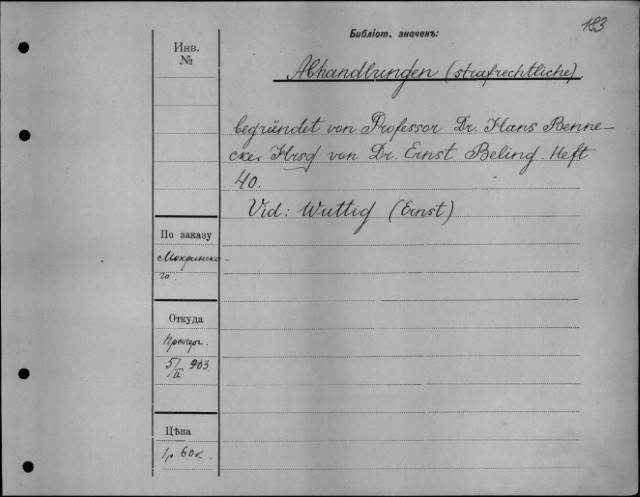 183
Библіот. значекъ:
Инв.
№
Abhandlungen (strafrechtliche)
begründet von Professor Dr. Hans Benne-
cke. Hrsg von Dr. Ernst Beling. Heft
40.
Vid: Wuttig (Ernst)
По заказу
го.
Откуда
5/II 903
Цѣна
1р 60к.